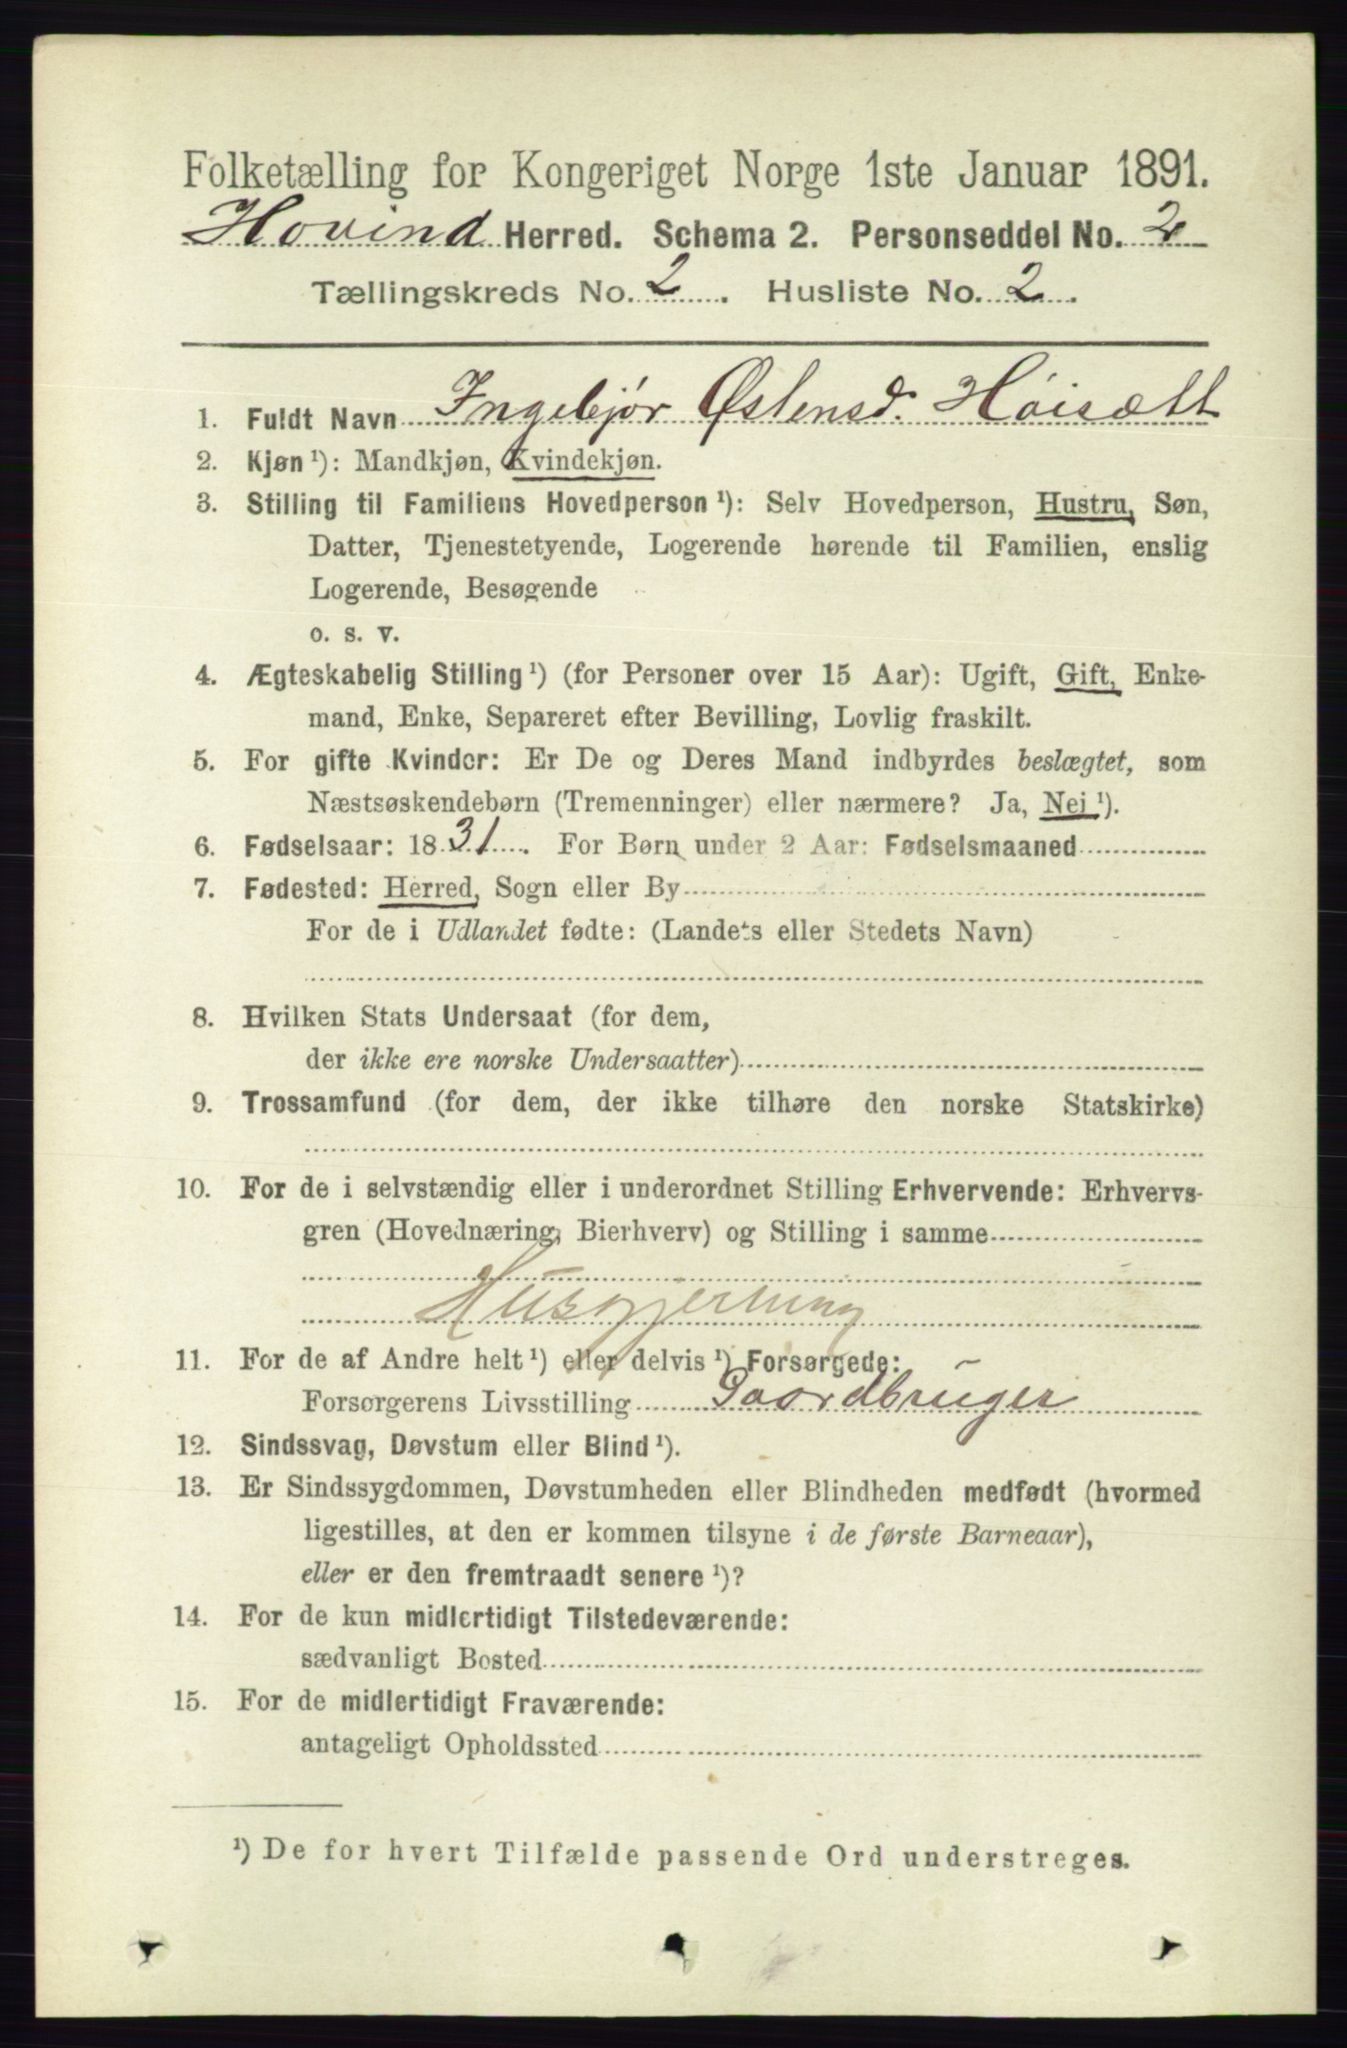 Folketælling for Kongeriget Norge 1ste Januar 1891.
Hovind Herred. Schema 2. Personseddel No. 2
Tællingskreds No. 2. Husliste No. 2.
1. Fuldt Navn Ingebjør Østensd. Høisætt
2. Kjøn¹): Mandkjøn, Kvindekjøn.
3. Stilling til Familiens Hovedperson¹): Selv Hovedperson, Hustru, Søn,
Datter, Tjenestetyende, Logerende hørende til Familien, enslig
Logerende, Besøgende
o. s. v.
4. Ægteskabelig Stilling¹) (for Personer over 15 Aar): Ugift, Gift, Enke-
mand, Enke, Separeret efter Bevilling, Lovlig fraskilt.
5. For gifte Kvinder: Er De og Deres Mand indbyrdes beslægtet, som
Næstsøskendebørn (Tremenninger) eller nærmere? Ja, Nei¹).
6. Fødselsaar: 1831. For Børn under 2 Aar: Fødselsmaaned
7. Fødested: Herred, Sogn eller By
For de i Udlandet fødte: (Landets eller Stedets Navn)
8. Hvilken Stats Undersaat (for dem,
der ikke ere norske Undersaatter)
9. Trossamfund (for dem, der ikke tilhøre den norske Statskirke)
10. For de i selvstændig eller i underordnet Stilling Erhvervende: Erhvervs-
gren (Hovednæring, Bierhverv) og Stilling i samme
Husgjerning
11. For de af Andre helt¹) eller delvis¹) Forsørgede:
Forsørgerens Livsstilling Gaardbruger
12. Sindssvag, Døvstum eller Blind¹).
13. Er Sindssygdommen, Døvstumheden eller Blindheden medfødt (hvormed
ligestilles, at den er kommen tilsyne i de første Barneaar),
eller er den fremtraadt senere¹)?
14. For de kun midlertidigt Tilstedeværende:
sædvanligt Bosted
15. For de midlertidigt Fraværende:
antageligt Opholdssted
¹) De for hvert Tilfælde passende Ord understreges.